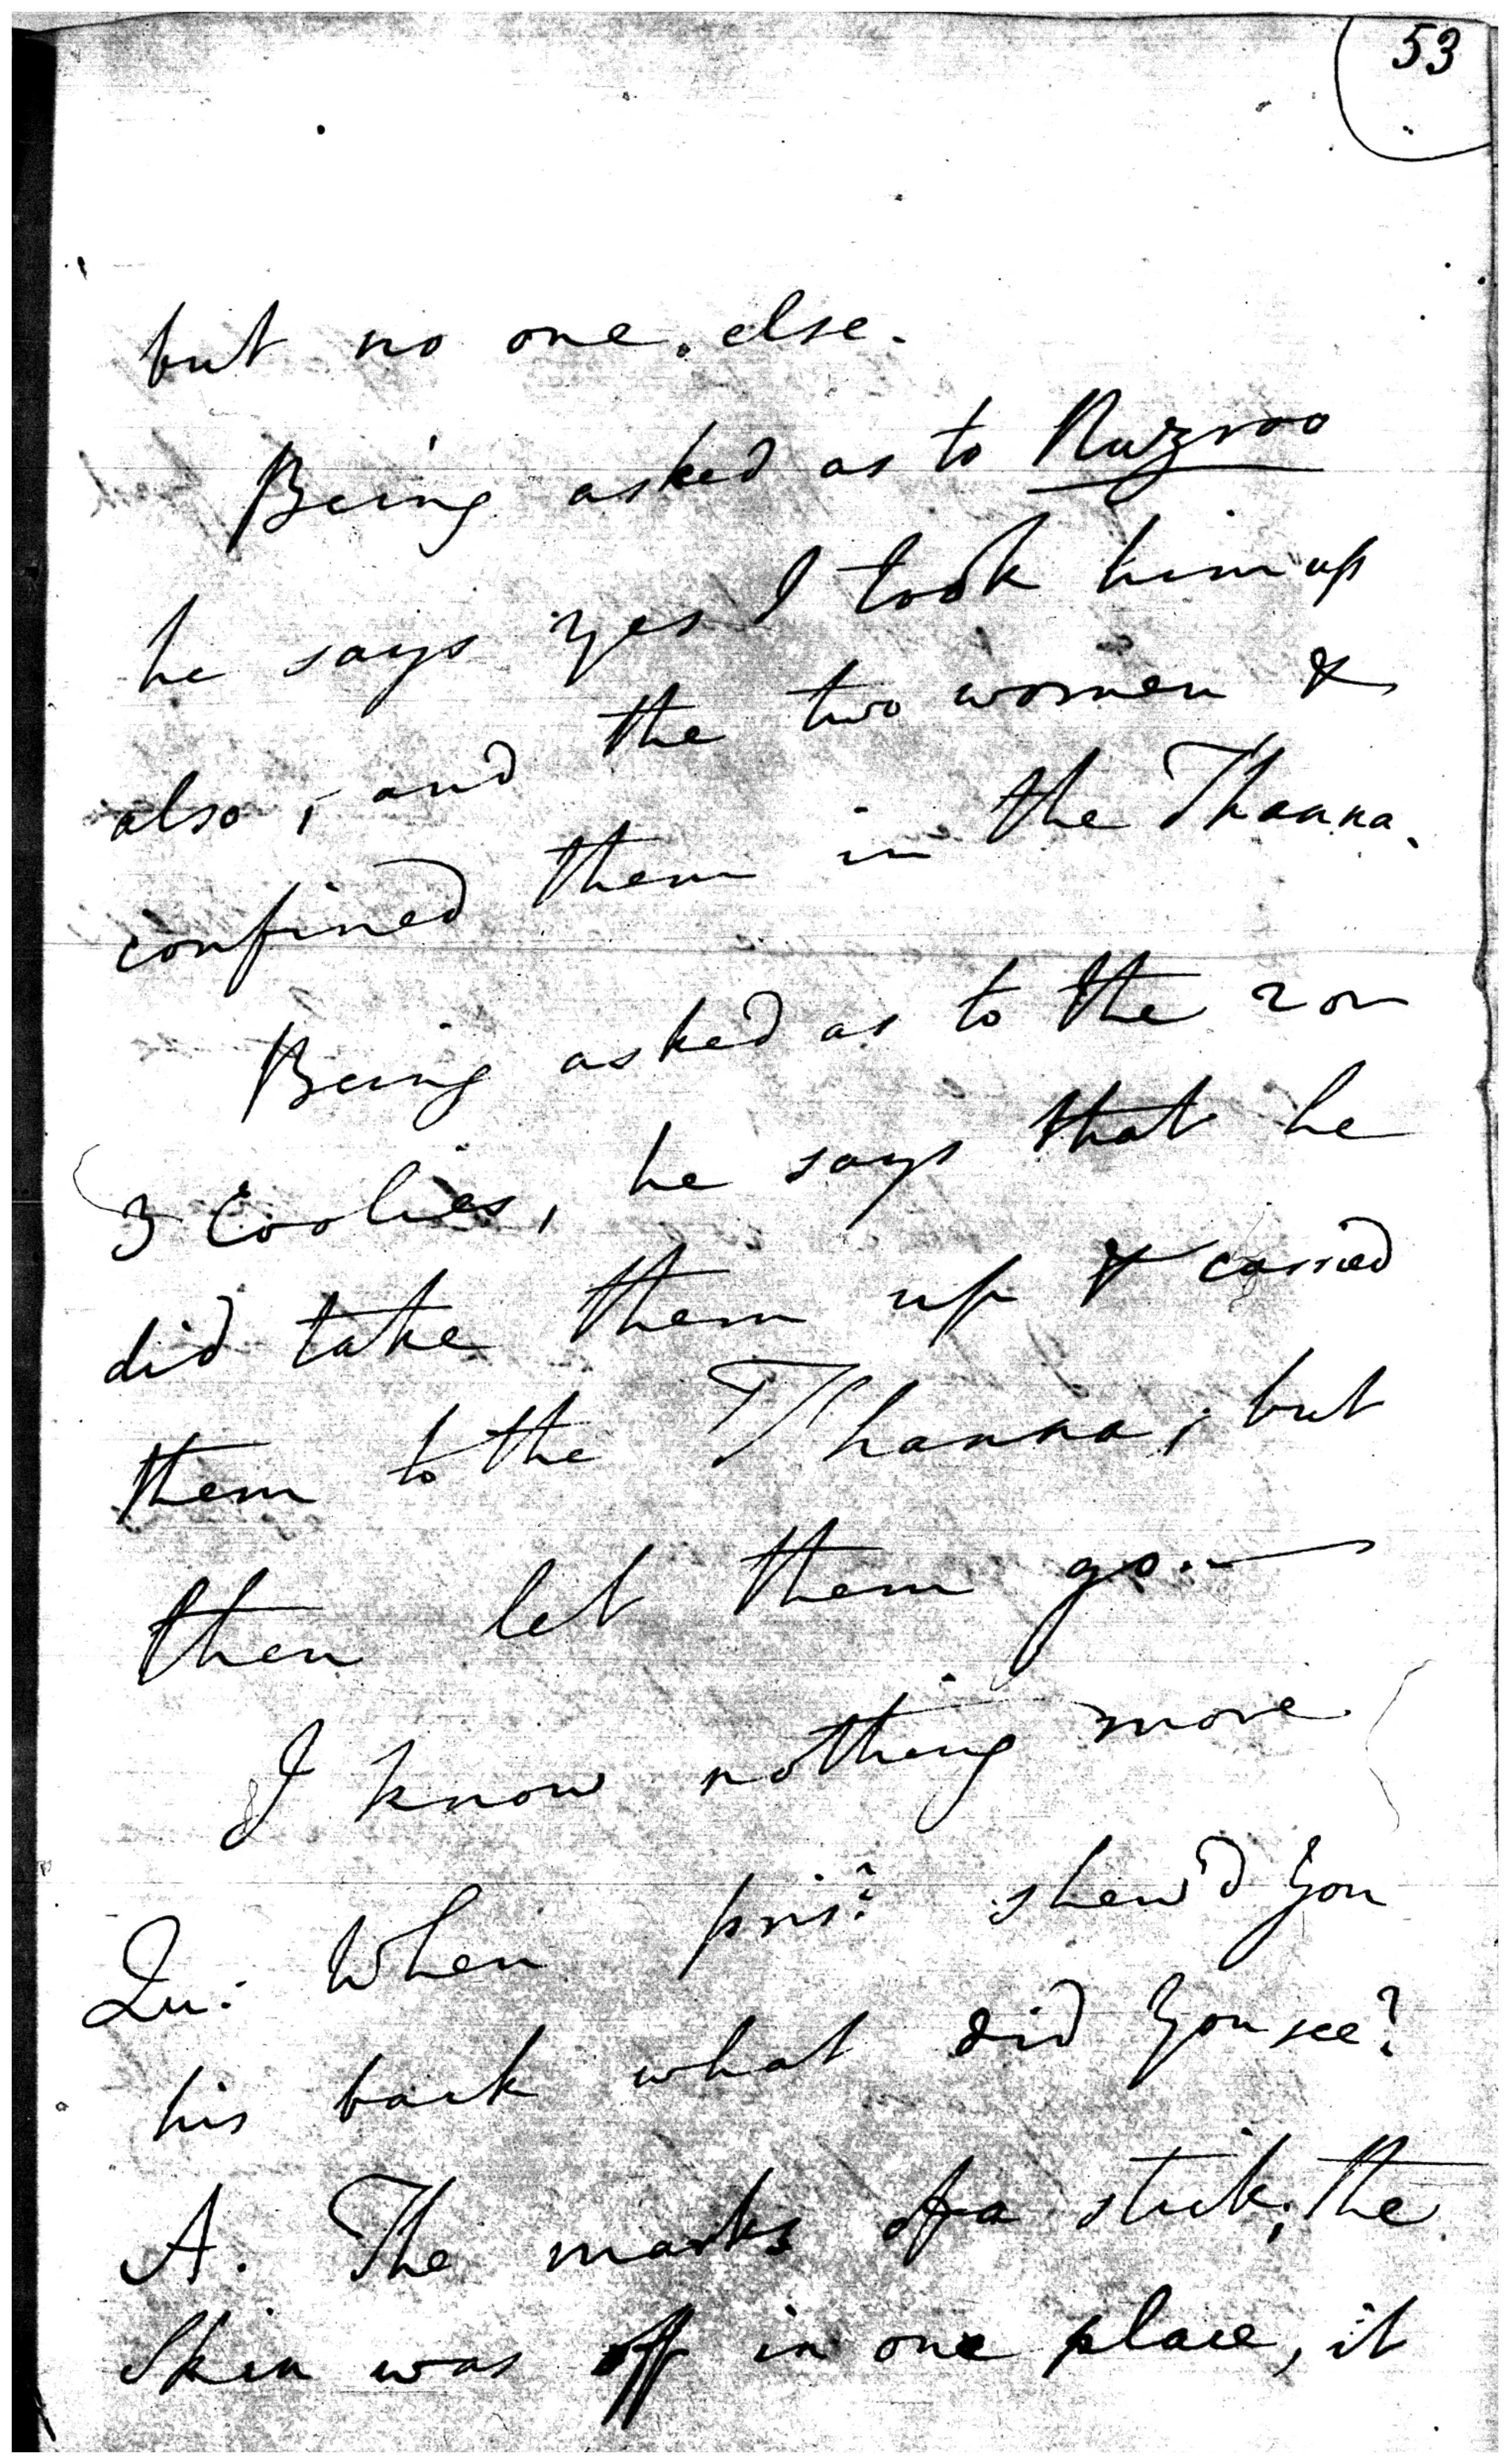 53
but no one else.
Being asked as to Nuzroo
he says yes I took him up
also, and the two women &
confined them in the Thanna.
Being asked as to the 2 or
3 Coolies, he says that he
did take them up & carried
them to the Thanna, but
then let them go.—
I know nothing more
Qu: When pris.r shew'd you
his back what did you see?
A. The marks of a stick; the
skin was off in one place, it